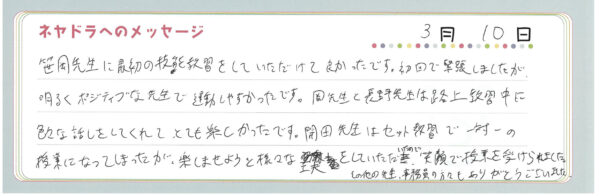 ネヤドラへのメッセージ 3月10日
笹岡先生に最初の技能教習をしていただけて良かったです。初回で緊張しましたが、
明るくポジティブな先生で運動しやすかったです。岡先生と長野先生は路上教習中に
色々な話しをしてくれてとても楽しかったです。開田先生はセット教習で一対一の
授業になってしまったが、楽しませようと様々な工夫をしていただき、笑顔で授業を受けられました。
その他の先生、事務員の方々もありがとうございました。